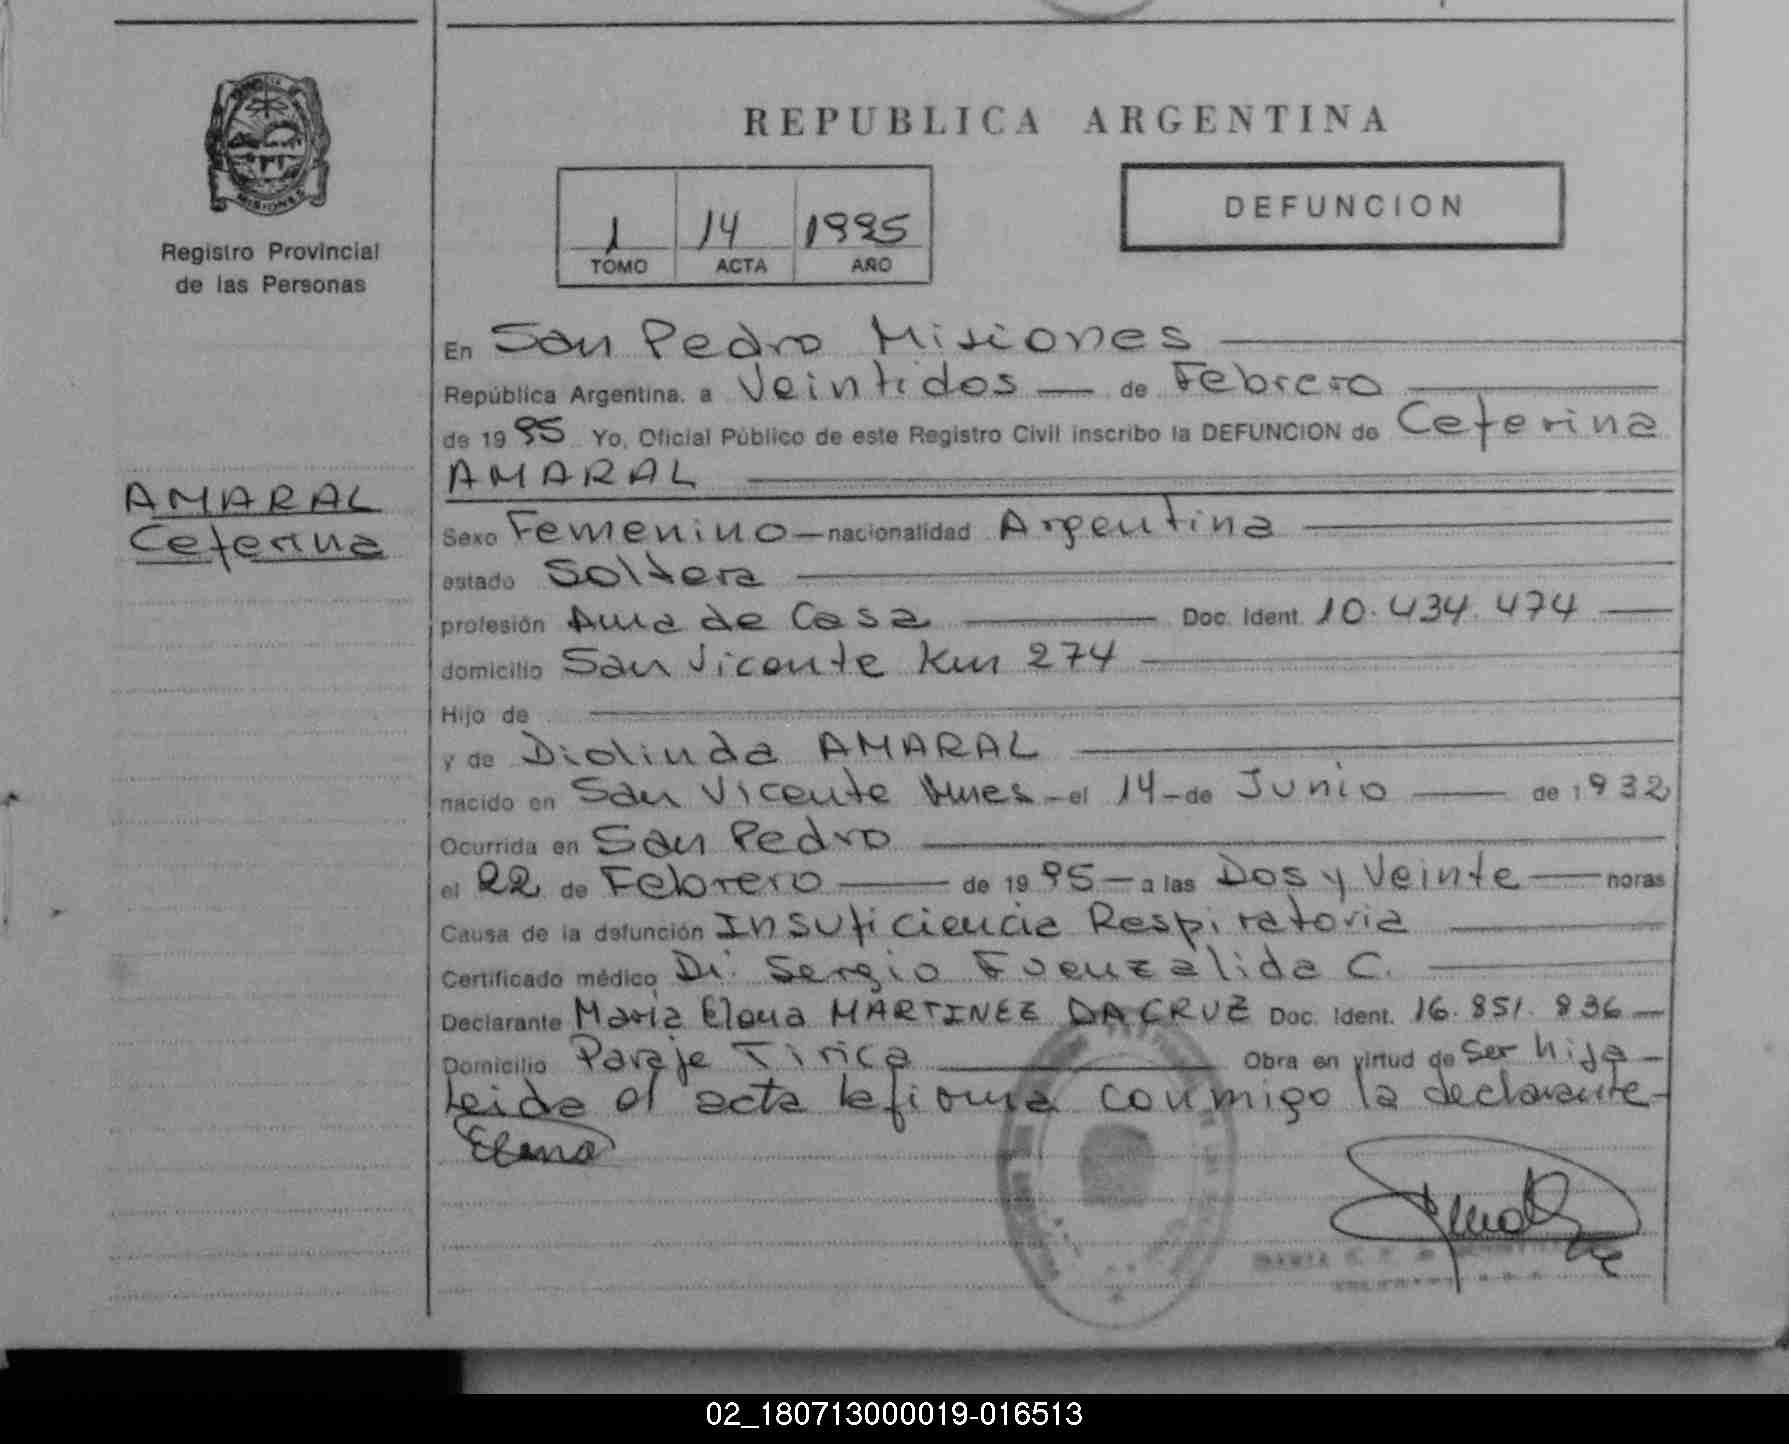 PROVINCIA DE
MISIONES
Registro Provincial
de las Personas
AMARAL
Ceferina
REPUBLICA ARGENTINA
1 14 1995
TOMO ACTA AÑO
DEFUNCION
En San Pedro Misiones
República Argentina, a Veintidos de Febrero
de 19 95 Yo, Oficial Público de este Registro Civil inscribo la DEFUNCION de Ceferina
AMARAL
Sexo Femenino nacionalidad Argentina
estado Soltera
profesión Ama de Casa Doc. Ident. 10.434.474
domicilio San Vicente Km 274
Hijo de
y de Diolinda AMARAL
nacido en San Vicente Mnes el 14 de Junio de 1932
Ocurrida en San Pedro
el 22 de Febrero de 19 95 a las Dos y Veinte horas
Causa de la defunción Insuficiencia Respiratoria
Certificado médico Dr. Sergio Fuenzalida C.
Declarante Maria Elena MARTINEZ DACRUZ Doc. Ident. 16.851.836
Domicilio Paraje Tirica Obra en virtud de Ser hija
Leida el acta la firma conmigo la declarante
Elena
02_180713000019-016513